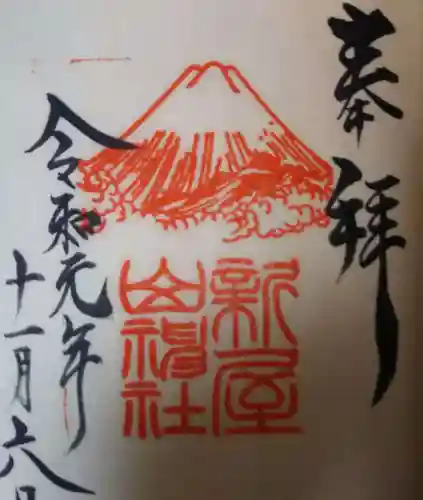 奉拝
新屋
山神社
令和元年
十一月六日